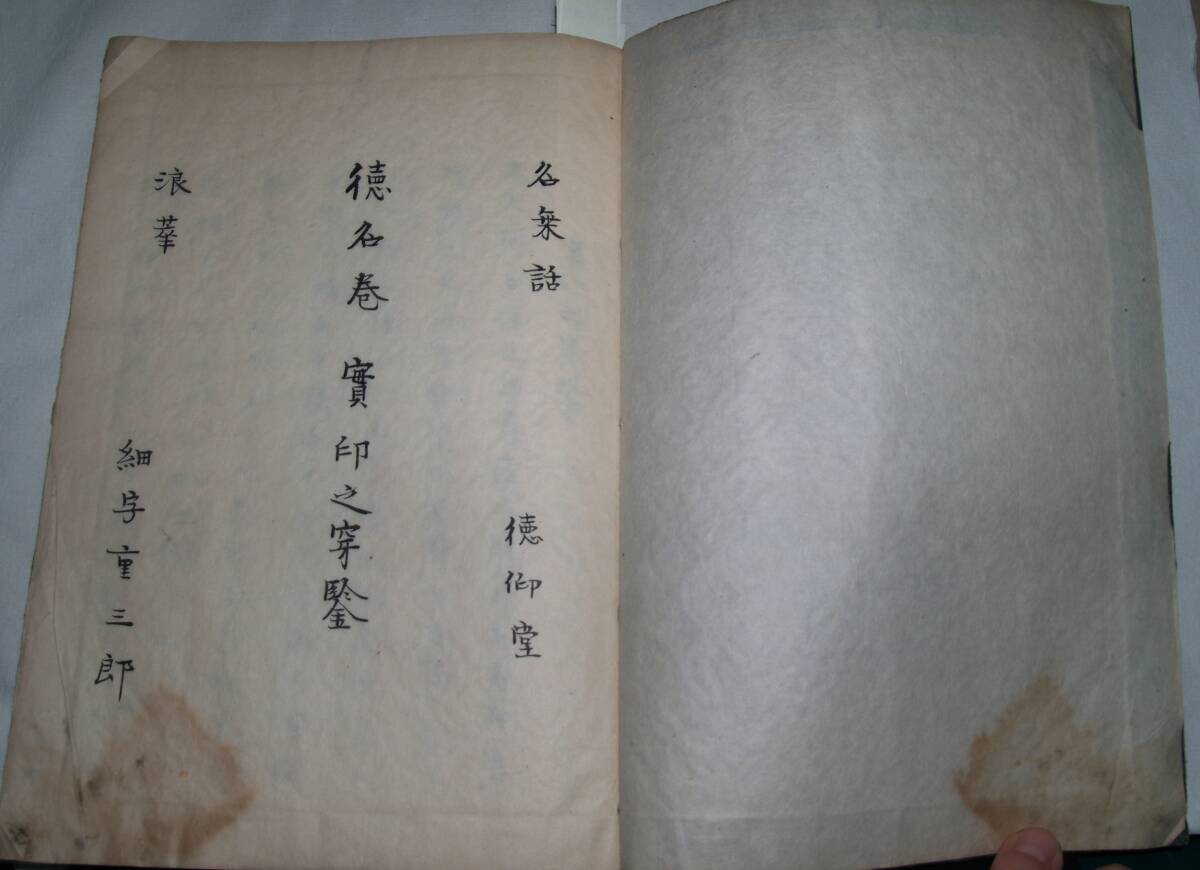 名乗話 徳仰堂
徳名巻 實印之穿鑒
浪華 細字重三郎